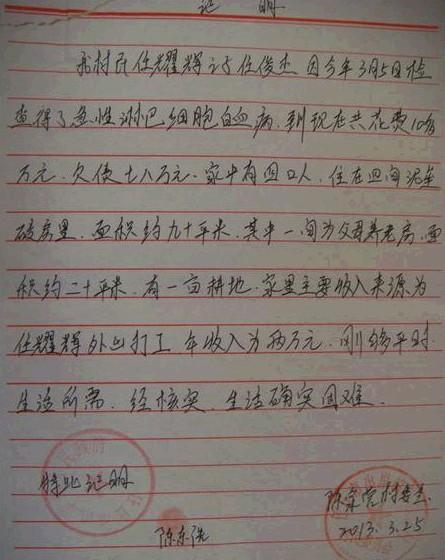 证明
我村民任耀辉之子任俊杰因今年3月5日检
查得了急性淋巴细胞白血病.到现在共花费10多
万元.欠债七八万元.家中有四口人.住在四间泥垒
破房里.面积约九十平米.其中一间为父母养老房.面
积约二十平米.有一亩耕地.家里主要收入来源为
任耀辉外出打工.年收入为两万元.刚够平时
生活所需.经核实.生活确实困难.
特此证明
村委会
2013.3.25